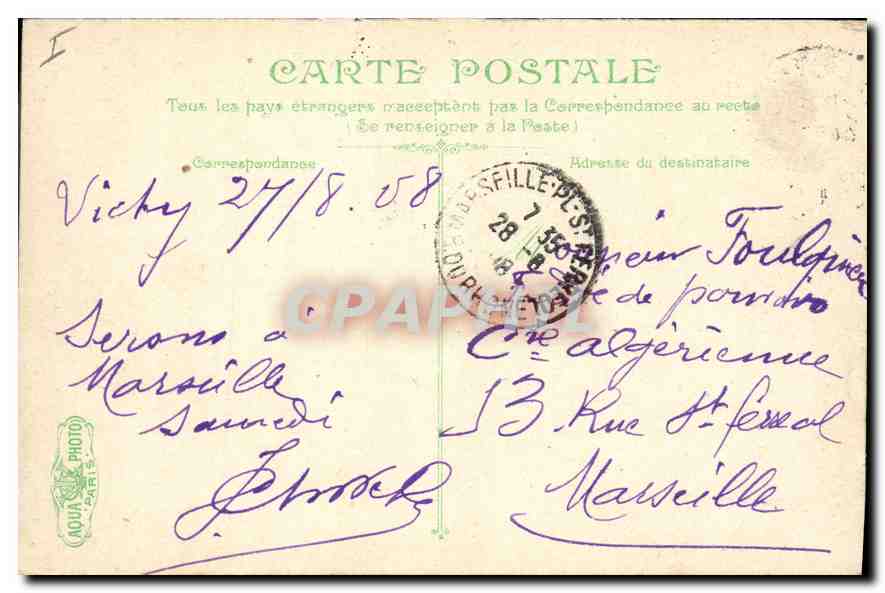 I
CARTE POSTALE
Tous les pays étrangers n'acceptent pas la Correspondance au recto
(Se renseigner à la Poste)
Correspondance
Adresse du destinataire
Vichy 27/8.08
Serons à
Marseille
Samedi
MARSEILLE-PL-ST FERRÉOL
BOUCHES DU RHONE
7 35
28 -8
08
Foulquier
de pouvoirs
Cie algérienne
13 Rue St ferréol
Marseille
AQUA PHOTO
PARIS
CPARTPHIL